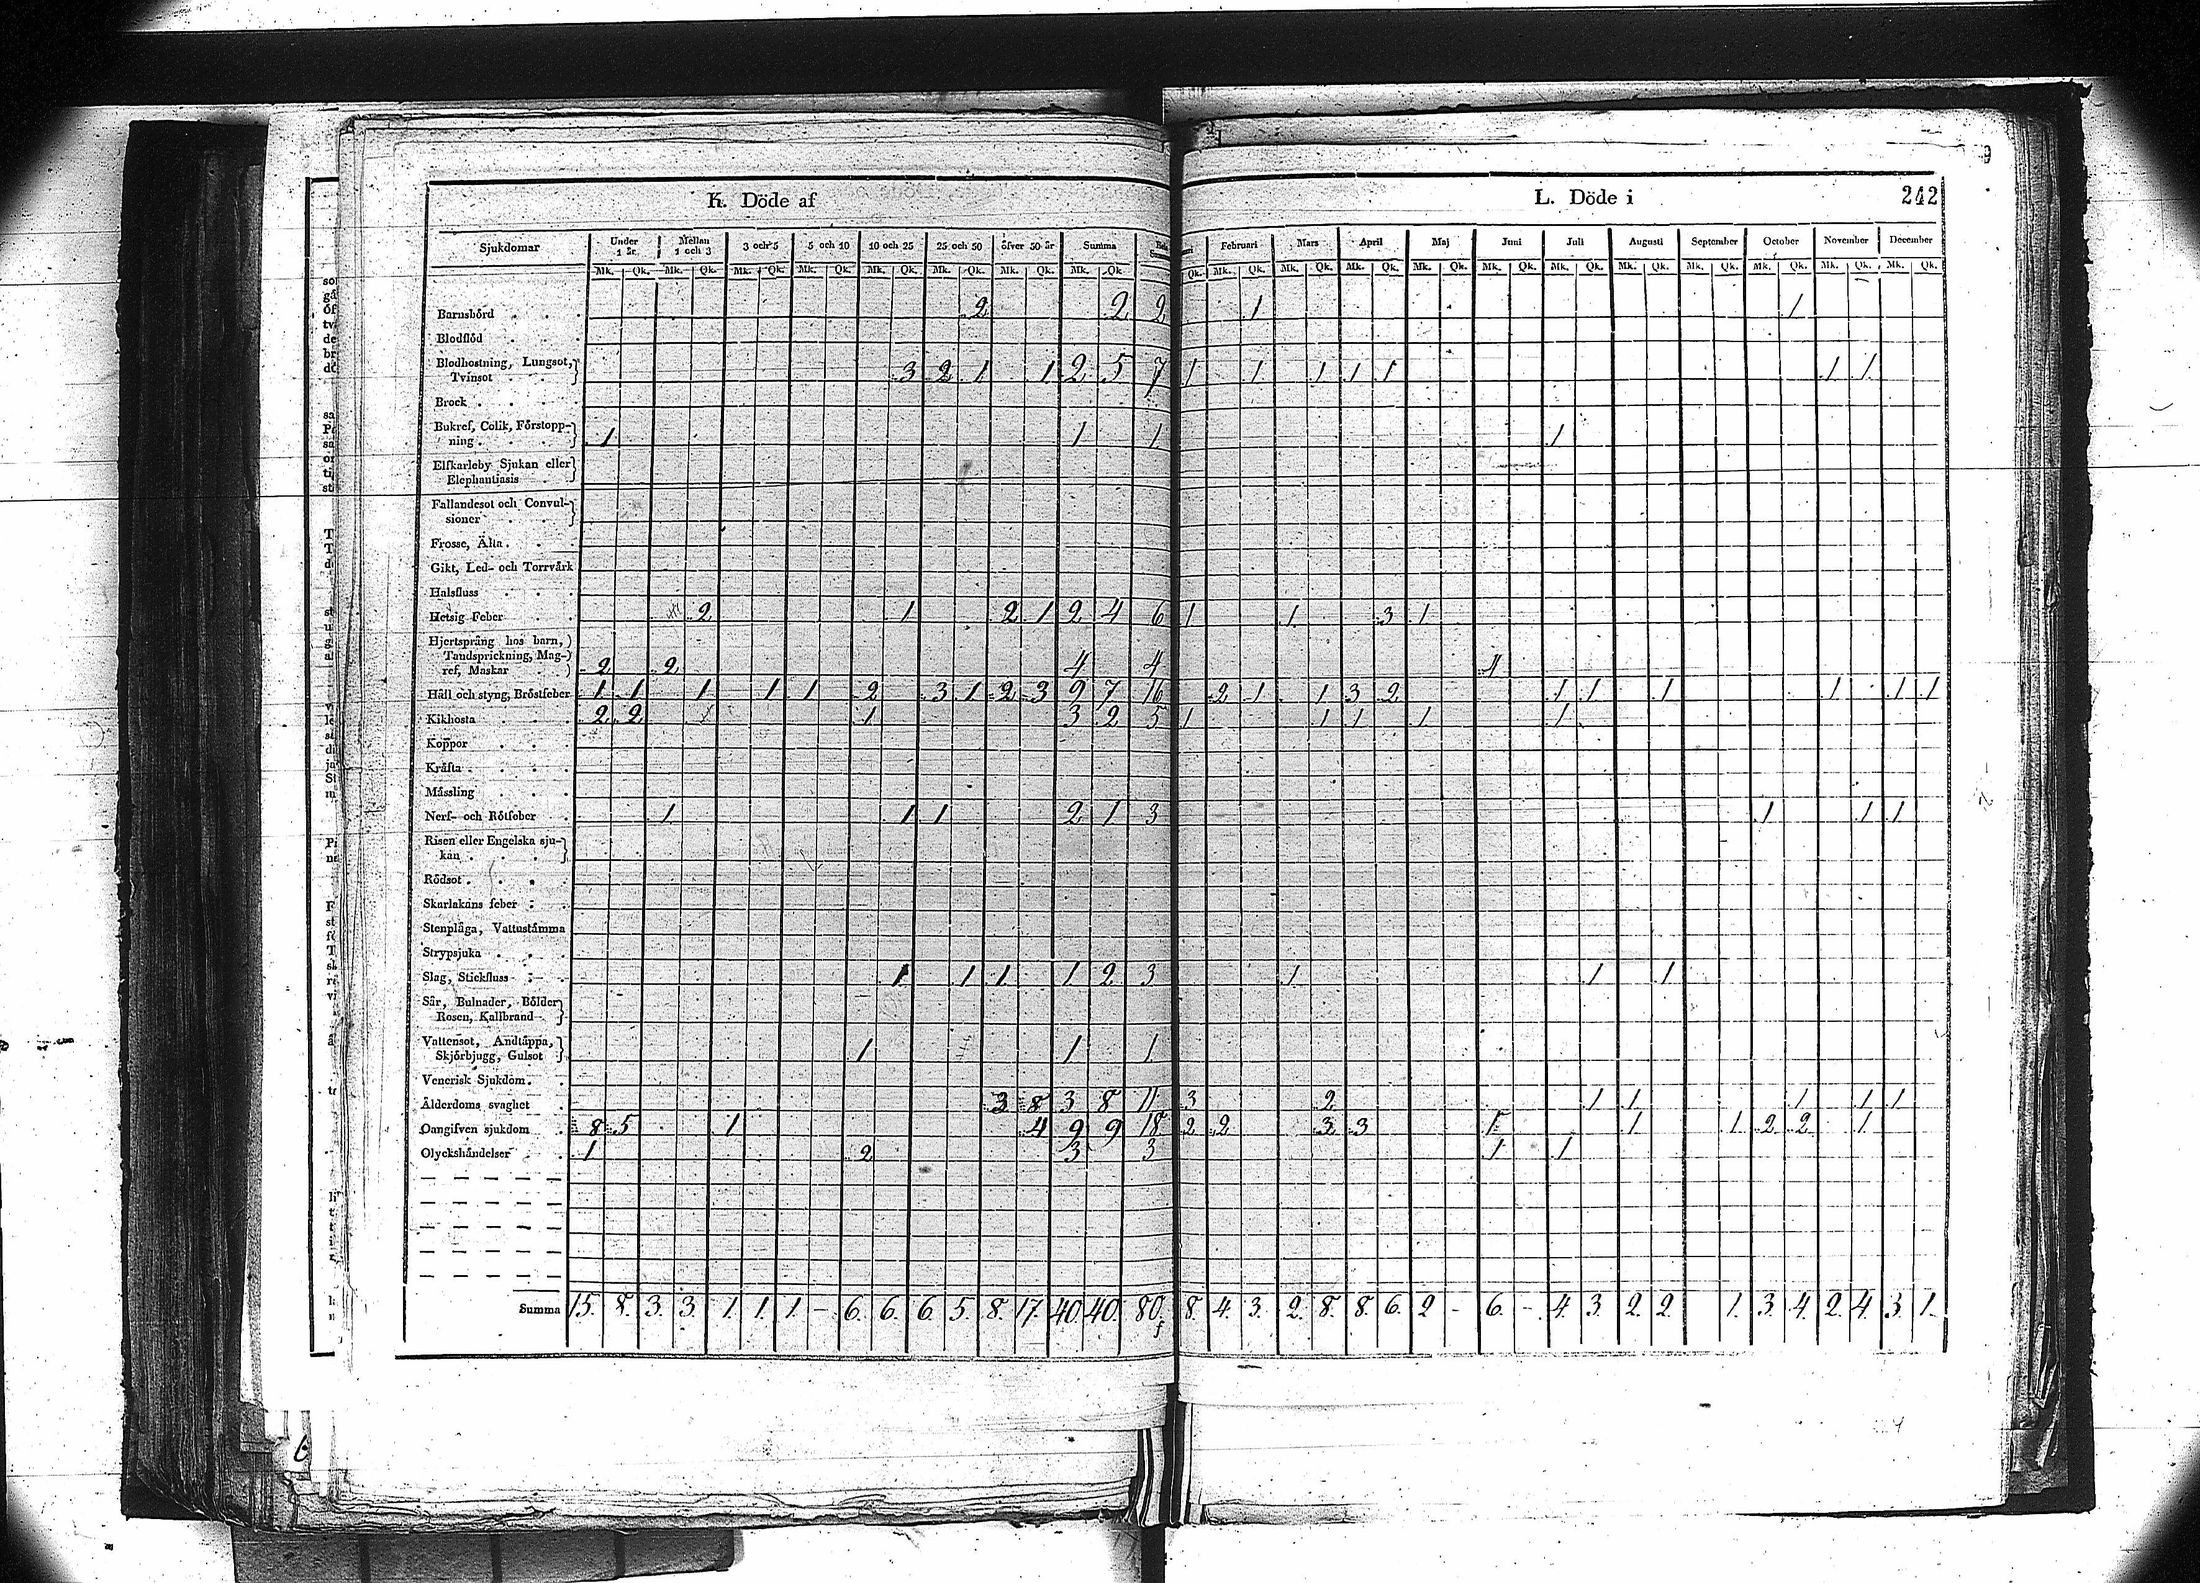 K. Döde af
L. Döde i 242
Sjukdomar Under 1 år Mellan 1 och 3 3 och 5 5 och 10 10 och 25 25 och 50 öfver 50 år Summa Februari Mars April Maj Juni Juli Augusti September October November December
Mk. Qk. Mk. Qk. Mk. Qk. Mk. Qk. Mk. Qk. Mk. Qk. Mk. Qk. Mk. Qk. Qk. Mk. Qk. Mk. Qk. Mk. Qk. Mk. Qk. Mk. Qk. Mk. Qk. Mk. Qk. Mk. Qk. Mk. Qk. Mk. Qk. Mk. Qk.
Barnsbörd 2 2 2 1 1
Blodflöd
Blodhostning, Lungsot,
Tvinsot 3 2 1 1 2 5 7 1 1 1 1 1 1 1
Brock
Bukref, Colik, Förstopp-
ning 1 1 1 1
Elfkarleby Sjukan eller
Elephantiasis
Fallandesot och Convul-
sioner
Frosse, Älta
Gikt, Led- och Torrvärk
Halsfluss
Hetsig Feber 2 1 2 1 2 4 6 1 1 3 1
Hjertsprång hos barn,
Tandsprickning, Mag-
ref, Maskar 2 2 4 4 4
Håll och styng, Bröstfeber 1 1 1 1 1 2 3 1 2 3 9 7 16 2 1 1 3 2 1 1 1 1 1 1
Kikhosta 2 2 1 3 2 5 1 1 1 1 1
Koppor
Kräfta
Mässling
Nerf- och Rötfeber 1 1 1 2 1 3 1 1 1
Risen eller Engelska sju-
kan
Rödsot
Skarlakans feber
Stenplåga, Vattustämma
Strypsjuka
Slag, Stickfluss 1 1 1 1 2 3 1 1 1
Sår, Bulnader, Bölder
Rosen, Kallbrand
Vattensot, Andtäppa,
Skjörbjugg, Gulsot 1 1 1
Venerisk Sjukdom
Ålderdoms svaghet 3 8 3 8 11 3 2 1 1 1 1 1
Oangifven sjukdom 8 5 1 4 9 9 18 2 2 3 3 1 1 1 2 2 1
Olyckshändelser 1 2 3 3 1 1
Summa 15. 8. 3. 3. 1. 1. 1. – 6. 6. 6. 5. 8. 17. 40. 40. 80. 8. 4. 3. 2. 8. 8. 6. 2 - 6. - 4. 3. 2. 2. 1. 3. 4. 2. 4. 3. 1.